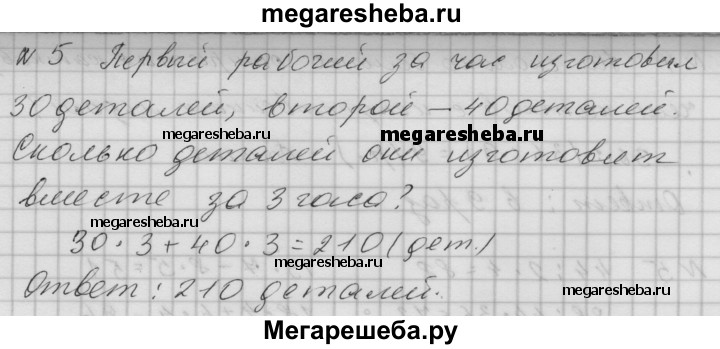 megaresheba.ru
№ 5 Первый рабочий за час изготовил
30 деталей, второй — 40 деталей.
megaresheba.ru
megaresheba.ru
Сколько деталей они изготовят
вместе за 3 часа?
megaresheba.ru
30 · 3 + 40 · 3 = 210 (дет.)
Ответ: 210 деталей.
megaresheba.ru
Мегарешеба.ру